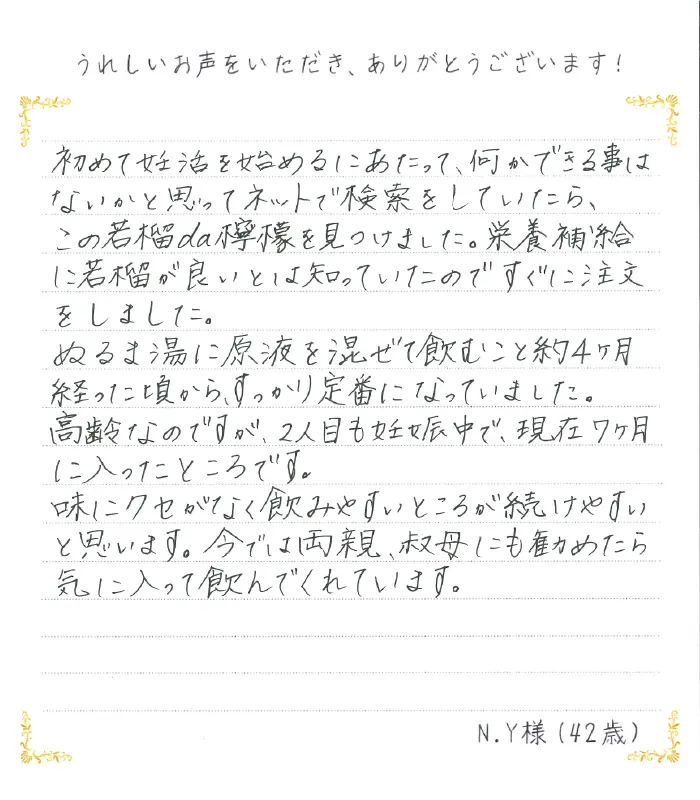 うれしいお声をいただき、ありがとうございます!
初めて妊活を始めるにあたって、何かできる事は
ないかと思ってネットで検索をしていたら、
この若榴da檸檬を見つけました。栄養補給
に若榴が良いとは知っていたのですぐに注文
をしました。
ぬるま湯に原液を混ぜて飲むこと約4ヶ月
経った頃から、すっかり定番になっていました。
高齢なのですが、2人目も妊娠中で、現在7ヶ月
に入ったところです。
味にクセがなく飲みやすいところが続けやすい
と思います。今では両親、叔母にも勧めたら
気に入って飲んでくれています。
N.Y様(42歳)